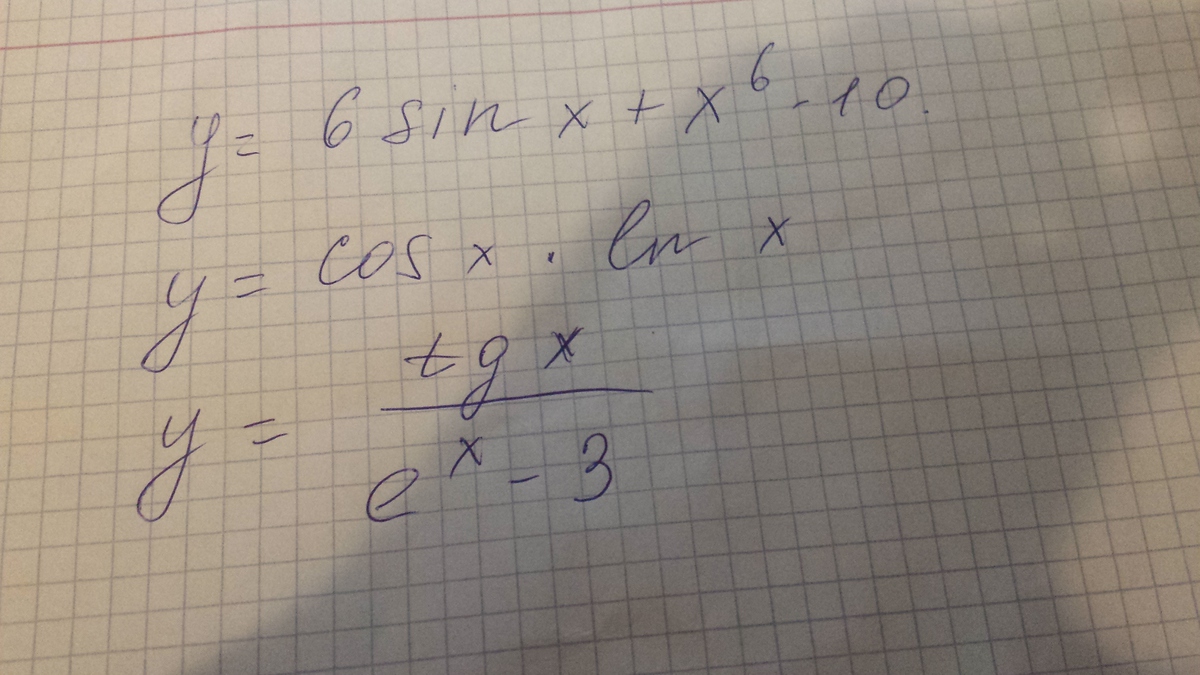 y = 6 sin x + x⁶ - 10.
y = cos x · ln x
y = tg x / eˣ - 3